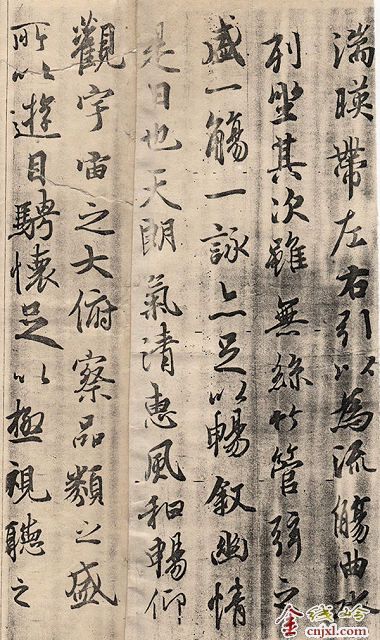 湍暎帶左右引以為流觴曲水
列坐其次雖無絲竹管弦之
盛一觴一詠亦足以暢叙幽情
是日也天朗氣清惠風和暢仰
觀宇宙之大俯察品類之盛
所以遊目騁懷足以極視聽之
金线岭
cnjxl.com